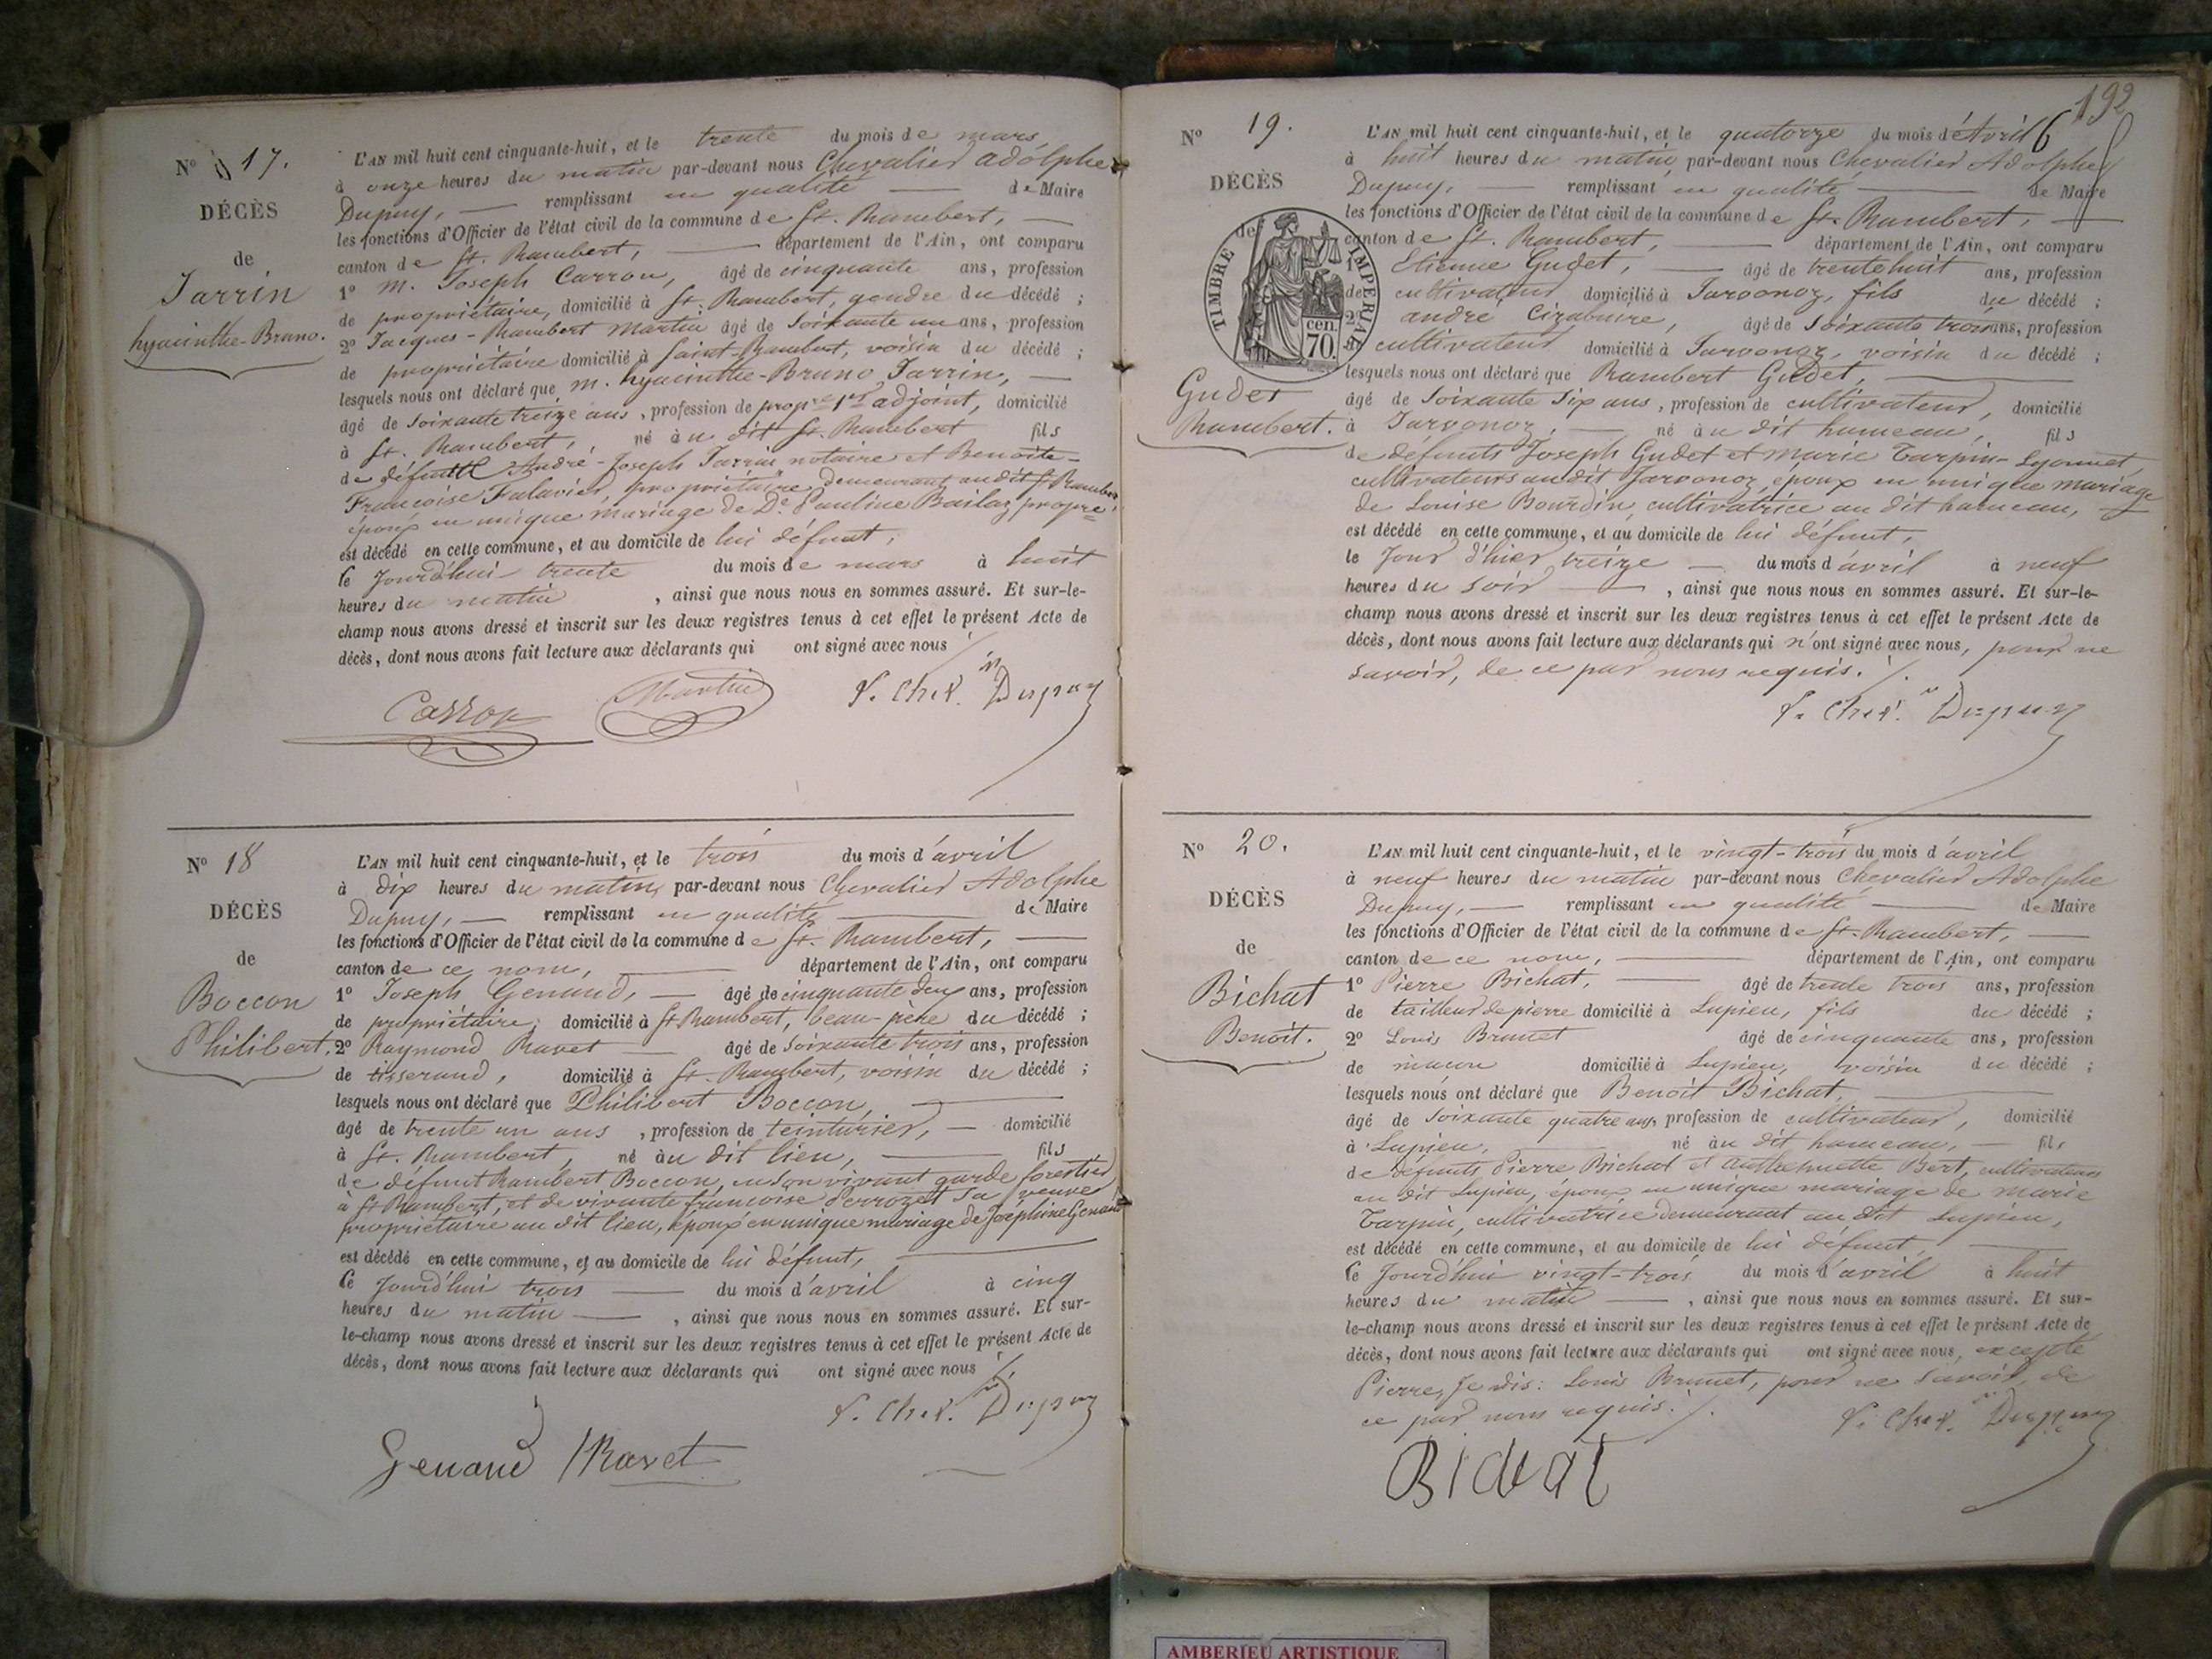 N° 17.
DÉCÈS
de
Jarrin
hyacinthe-Bruno.
L'AN mil huit cent cinquante-huit, et le trente du mois de mars
à onze heures du matin par-devant nous Chevalier Adolphe
Dupuy, remplissant en qualité de Maire
les fonctions d'Officier de l'état civil de la commune de St. Rambert,
canton de St. Rambert, département de l'Ain, ont comparu
1° M. Joseph Carron, âgé de cinquante ans, profession
de propriétaire, domicilié à St. Rambert, gendre du décédé ;
2° Jacques-Rambert Martin âgé de soixante un ans, profession
de propriétaire domicilié à Saint-Rambert, voisin du décédé ;
lesquels nous ont déclaré que M. hyacinthe-Bruno Jarrin,
âgé de soixante treize ans, profession de propre 1er adjoint, domicilié
à St. Rambert, né au dit St. Rambert fils
de défunt André-Joseph Jarrin notaire et Benoite-
Françoise Falavier, propriétaire demeurant audit St Rambert
époux en unique mariage de De Pauline Bailaz propre
est décédé en cette commune, et au domicile de lui défunt,
le jourd'hui trente du mois de mars à huit
heures du matin, ainsi que nous nous en sommes assuré. Et sur-le-
champ nous avons dressé et inscrit sur les deux registres tenus à cet effet le présent Acte de
décès, dont nous avons fait lecture aux déclarants qui ont signé avec nous
Carron Martin Dupuy
N° 18
DÉCÈS
de
Boccon
Philibert.
L'AN mil huit cent cinquante-huit, et le trois du mois d'avril
à dix heures du matin, par-devant nous Chevalier Adolphe
Dupuy, remplissant en qualité de Maire
les fonctions d'Officier de l'état civil de la commune de St. Rambert,
canton de ce nom, département de l'Ain, ont comparu
1° Joseph Genaud, âgé de cinquante deux ans, profession
de propriétaire, domicilié à St Rambert, beau-pere du décédé ;
2° Raymond Ravet âgé de soixante trois ans, profession
de tisserand, domicilié à St. Rambert, voisin du décédé ;
lesquels nous ont déclaré que Philibert Boccon,
âgé de trente un ans, profession de teinturier, domicilié
à St. Rambert, né au dit lieu, fils
de défunt Rambert Boccon, en son vivant garde forestier
à St Rambert, et de vivante françoise Perrozet sa veuve
propriétaire au dit lieu, époux en unique mariage de Joséphine Genaud
est décédé en cette commune, et au domicile de lui défunt,
le jourd'hui trois du mois d'avril à cinq
heures du matin, ainsi que nous nous en sommes assuré. Et sur-
le-champ nous avons dressé et inscrit sur les deux registres tenus à cet effet le présent Acte de
décès, dont nous avons fait lecture aux déclarants qui ont signé avec nous
Dupuy
Genand Ravet
192
N° 19.
DÉCÈS
de
TIMBRE IMPERIAL
70 cen.
Gudet
Rambert.
L'AN mil huit cent cinquante-huit, et le quatorze du mois d'Avril
à huit heures du matin, par-devant nous Chevalier Adolphe
Dupuy, remplissant en qualité de Maire
les fonctions d'Officier de l'état civil de la commune de St. Rambert,
canton de St. Rambert, département de l'Ain, ont comparu
1° Etienne Gudet, âgé de trente huit ans, profession
de cultivateur domicilié à Jarvonoz, fils du décédé ;
2° andre Cizabuire, âgé de soixante trois ans, profession
de cultivateur domicilié à Jarvonoz, voisin du décédé ;
lesquels nous ont déclaré que Rambert Gudet,
âgé de soixante six ans, profession de cultivateur, domicilié
à Jarvonoz, né au dit hameau, fils
de défunts Joseph Gudet et marie Tarpin-Lyonnet,
cultivateurs au dit Jarvonoz, époux en unique mariage
de Louise Bourdin, cultivatrice au dit hameau,
est décédé en cette commune, et au domicile de lui défunt,
le jour d'hier treize du mois d'avril à neuf
heures du soir, ainsi que nous nous en sommes assuré. Et sur-le-
champ nous avons dressé et inscrit sur les deux registres tenus à cet effet le présent Acte de
décès, dont nous avons fait lecture aux déclarants qui n'ont signé avec nous, pour ne
savoir, de ce par nous requis.
Dupuy
N° 20.
DÉCÈS
de
Bichat
Benoit.
L'AN mil huit cent cinquante-huit, et le vingt-trois du mois d'avril
à neuf heures du matin par-devant nous Chevalier Adolphe
Dupuy, remplissant en qualité de Maire
les fonctions d'Officier de l'état civil de la commune de St. Rambert,
canton de ce nom, département de l'Ain, ont comparu
1° Pierre Bichat, âgé de trente trois ans, profession
de tailleur de pierre domicilié à Lupieu, fils du décédé ;
2° Louis Brunet âgé de cinquante ans, profession
de maçon domicilié à Lupieu, voisin du décédé ;
lesquels nous ont déclaré que Benoit Bichat,
âgé de soixante quatre ans, profession de cultivateur, domicilié
à Lupieu, né au dit hameau, fils
de défunts Pierre Bichat et anthelmette Bert, cultivateurs
au dit Lupieu, époux en unique mariage de marie
Tarpin, cultivatrice demeurant au dit Lupieu,
est décédé en cette commune, et au domicile de lui défunt,
le jourd'hui vingt-trois du mois d'avril à huit
heures du matin, ainsi que nous nous en sommes assuré. Et sur-
le-champ nous avons dressé et inscrit sur les deux registres tenus à cet effet le présent Acte de
décès, dont nous avons fait lecture aux déclarants qui ont signé avec nous, excepté
Pierre, je dis: Louis Brunet, pour ne savoir, de
ce par nous requis.
Dupuy
Bichat
AMBERIEU ARTISTIQUE